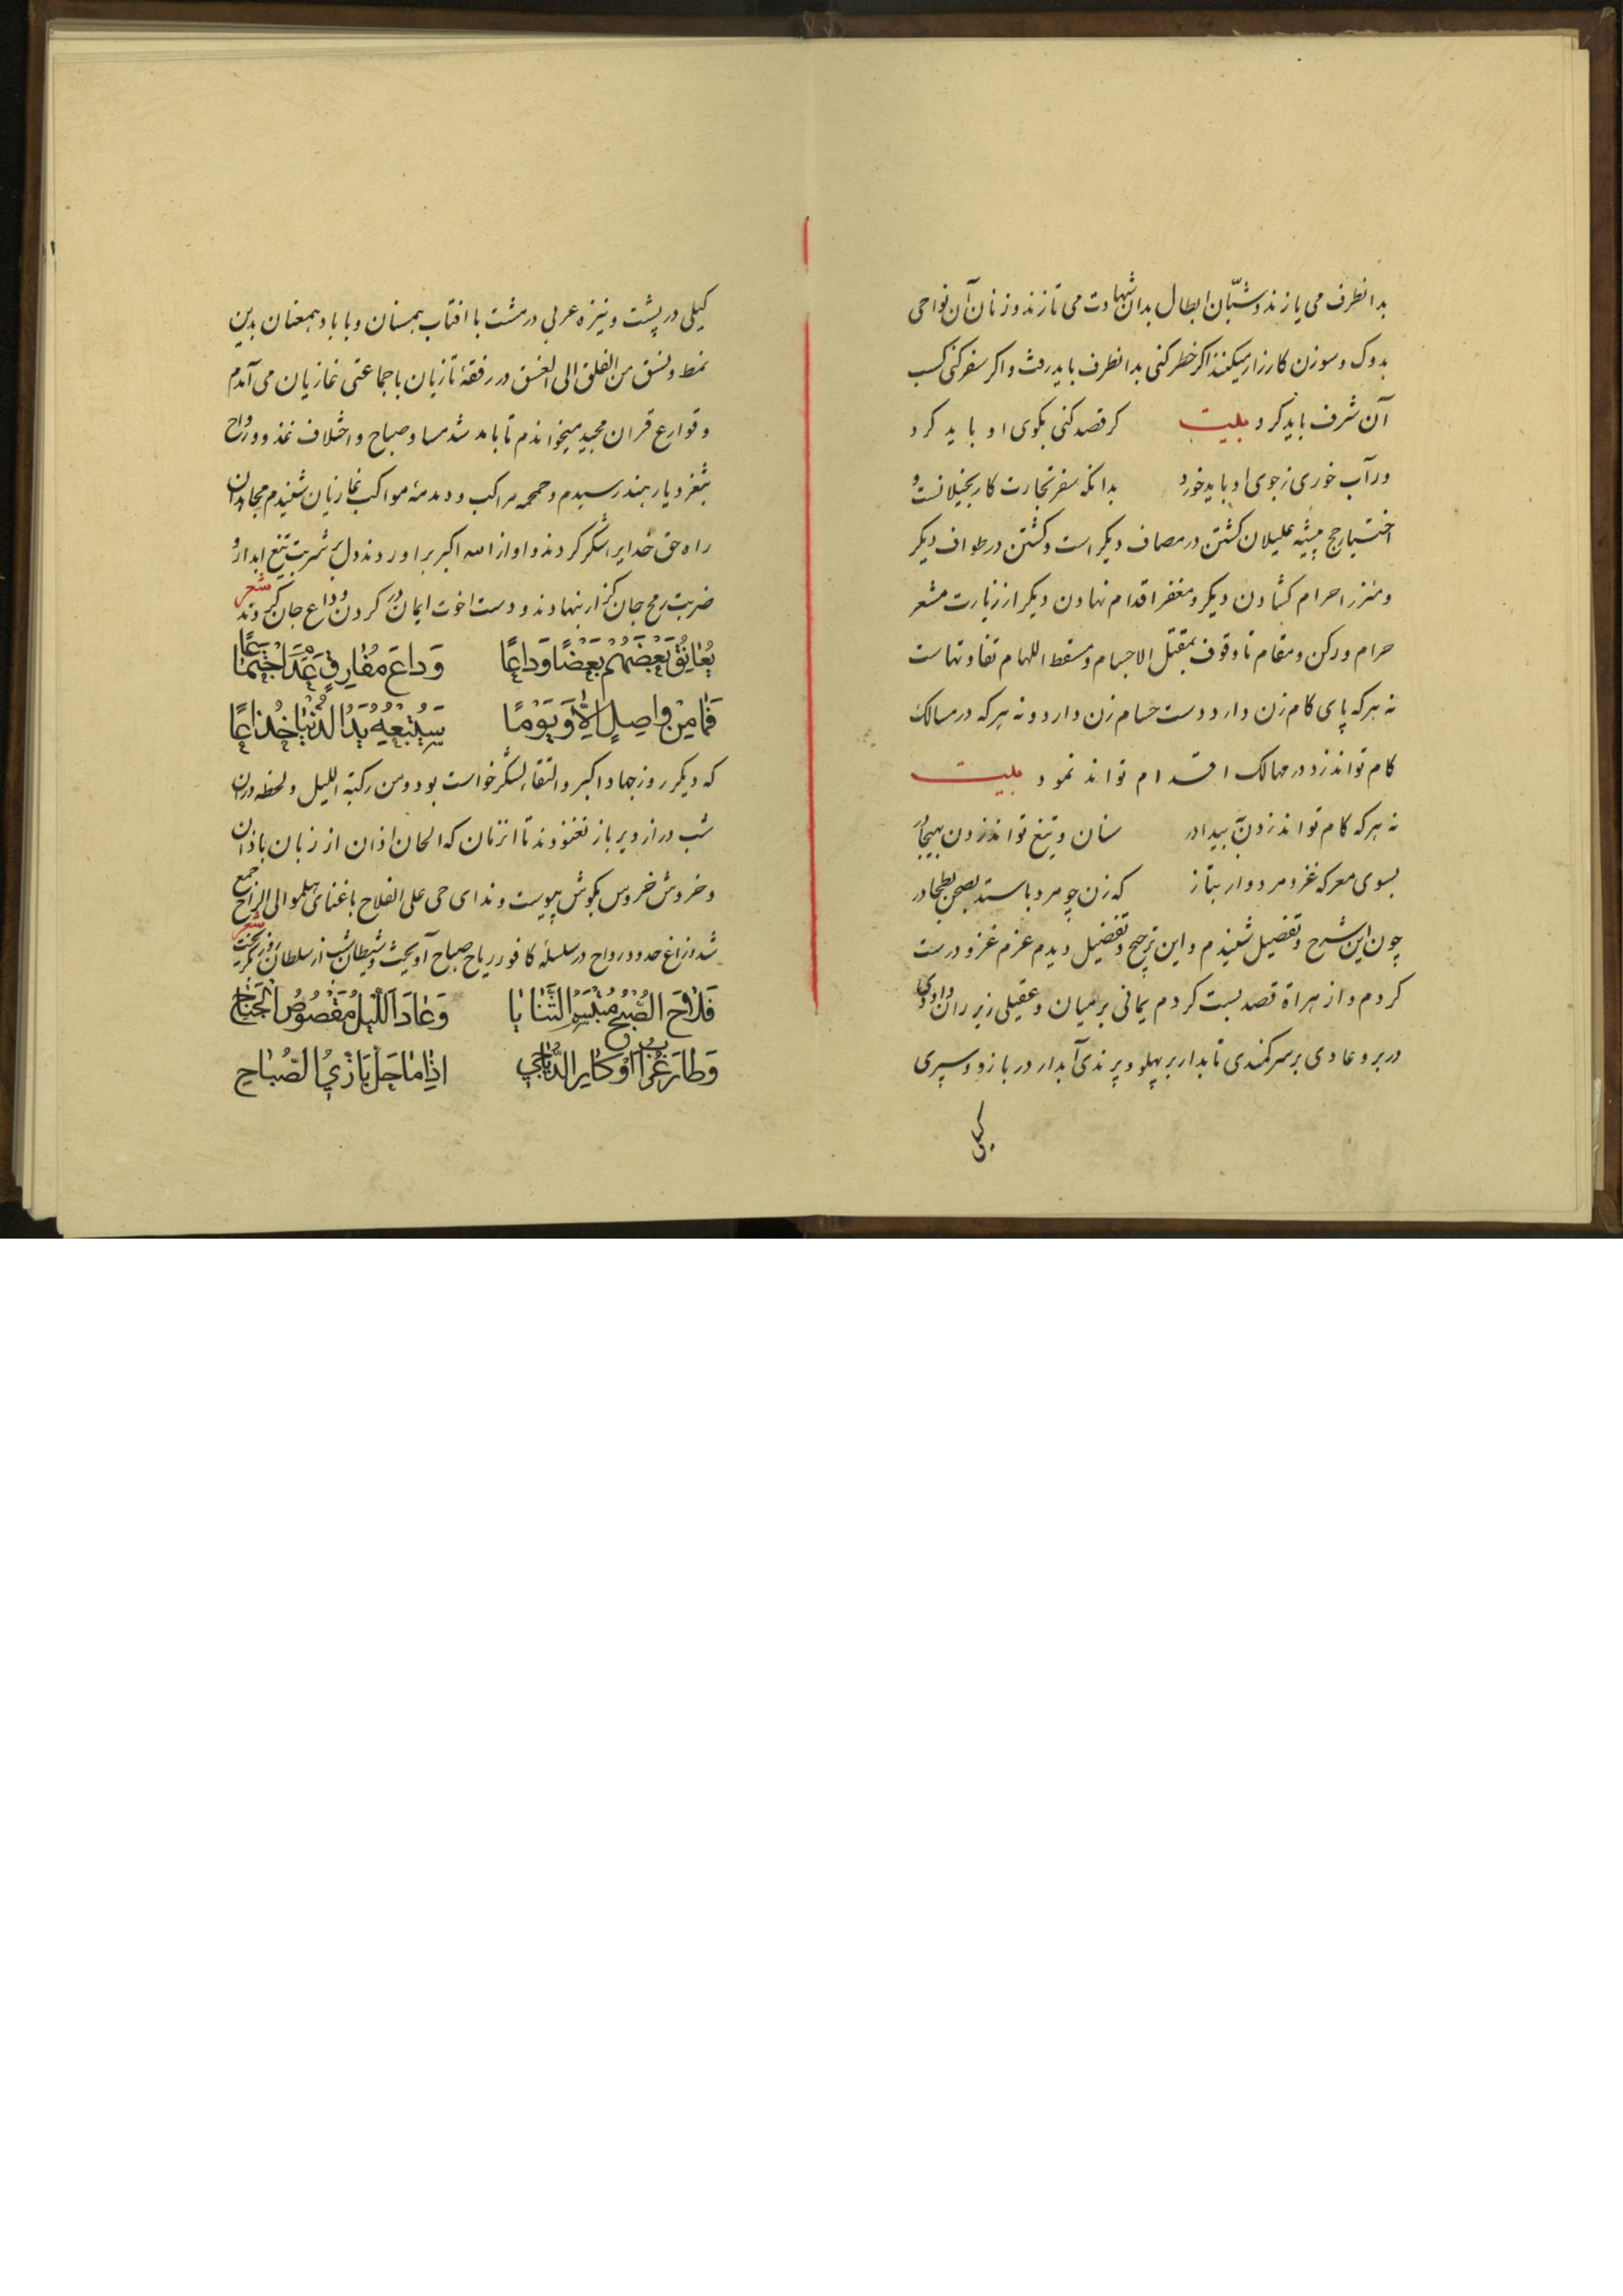 بدانطرف می یازند و شبّان ابطال بدان شهادت می تازند و زنان آن نواحی
بدوک و سوزن کارزار میکنند اکر خطر کنی بدانطرف باید رفت و اکر سفر کنی کسب
آن شرف باید کرد بیت کر قصد کنی بکوی او باید کرد
ور آب خوری ز جوی او باید خورد بدانکه سفر تجارت کار بخیلانست و
اختیار حج پیشه علیلان کشتن در مصاف دیکر است و کشتن در طواف دیکر
و میزر احرام کشادن دیکر و مغفر اقدام نهادن دیکر از زیارت مشعر
حرام و رکن و مقام تا وقوف بمقتل الاجسام و مسقط اللهام تفاوتهاست
نه هرکه پای کام زن دارد دست حسام زن دارد و نه هرکه در مسالک
کام تواند زد در مهالک اقدام تواند نمود بیت
نه هرکه کام تواند زدن به بیدا در سنان و تیغ تواند زدن بهیجا در
بسوی معرکه غزو مردوار بتاز که زن چو مرد باستد بصحن بطحا در
چون این شرح و تفصیل شنیدم و این ترجیح و تفضیل دیدم عزم غزو درست
کردم و از هراة قصد بست کردم یمانی بر میان و عقیلی زیر ران و داودی
در بر و عادی بر سر کمندی تابدار بر پهلو و پرندی آبدار در بازو و سپری
کیلی
کیلی در پشت و نیزه عربی در مشت با افتاب همسان و با باد همعنان بدین
نمط و نسق من الفلق الی الغسق در رفقهٔ تازیان با جماعتی غازیان می آمدم
و قوارع قران مجید میخواندم تا بامد شد مسا و صباح و اختلاف غدو و رواح
بثغر دیار هند رسیدم و حمحمه مراکب و دمدمهٔ مواکب غازیان شنیدم مجاهدان
راه حق خدایرا شکر کردند و اواز الله اکبر براوردند دل بر شربت تیغ ابدار و
ضربت رمح جان کزار بنهادند و دست اخوت ایمان در کردن وداع جان کردند شعر
يُعانِقُ بَعْضُهُمْ بَعْضًا وَداعًا وَداعَ مُفارِقٍ عَدَمَ اجْتِماعًا
فَما مِنْ واصِلٍ اِلّا وَيَوْمًا سَيُتْبِعُهُ يَدُ الدُّنْيا خُذاعًا
که دیکر روز جهاد اکبر و التقاء لشکر خواست بود و من رکبته اللیل و لحظه در ان
شب دراز دیرباز نغنودند تا انزمان که الحان اذان از زبان باذان
و خروش خروس بکوش پیوست و ندای حی علی الفلاح با غنای هلموا الی الراح جمع
شد و زاغ حدود رواح در سلسلهٔ کافور ریاح صباح آویخت و شیطان شب از سلطان روز بکریخت شعر
فَلاحَ الصُّبْحُ مُبْتَسِمَ الثَّنايا وَعادَ اللَّيْلُ مَقْصُوصَ الْجَناحِ
وَطارَ غُرابُ اَوْكارِ الدَّياجي اِذا ما حَلَّ بازِيُّ الصَّباحِ